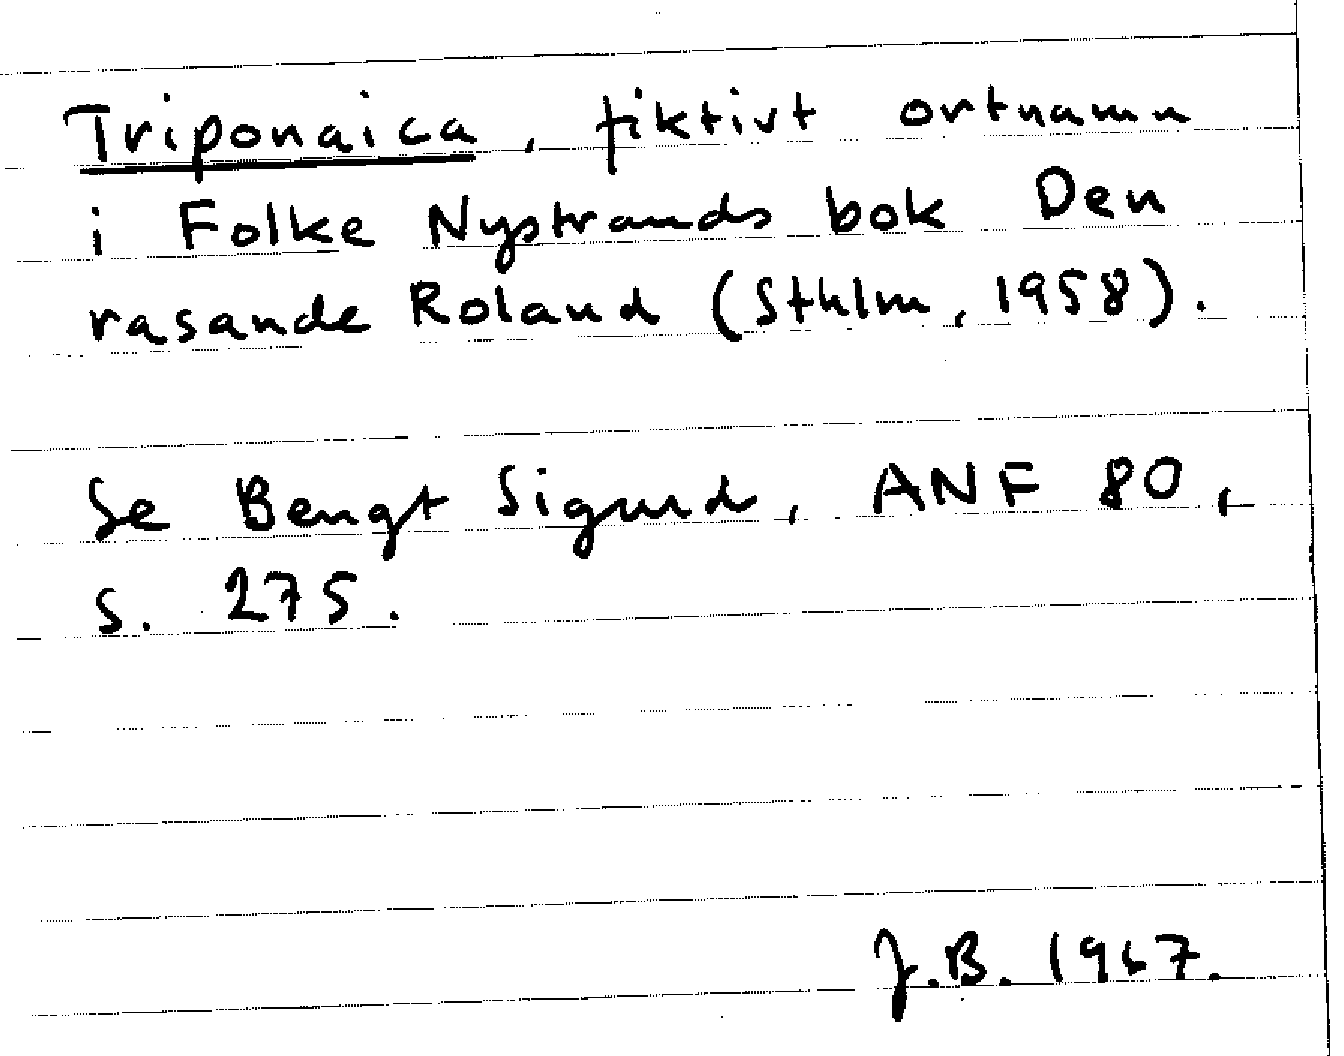 Triponaica, fiktivt ortnamn
i Folke Nystrands bok Den
rasande Roland (Sthlm, 1958).
Se Bengt Sigurd, ANF 80,
s. 275.
J.B. 1967.